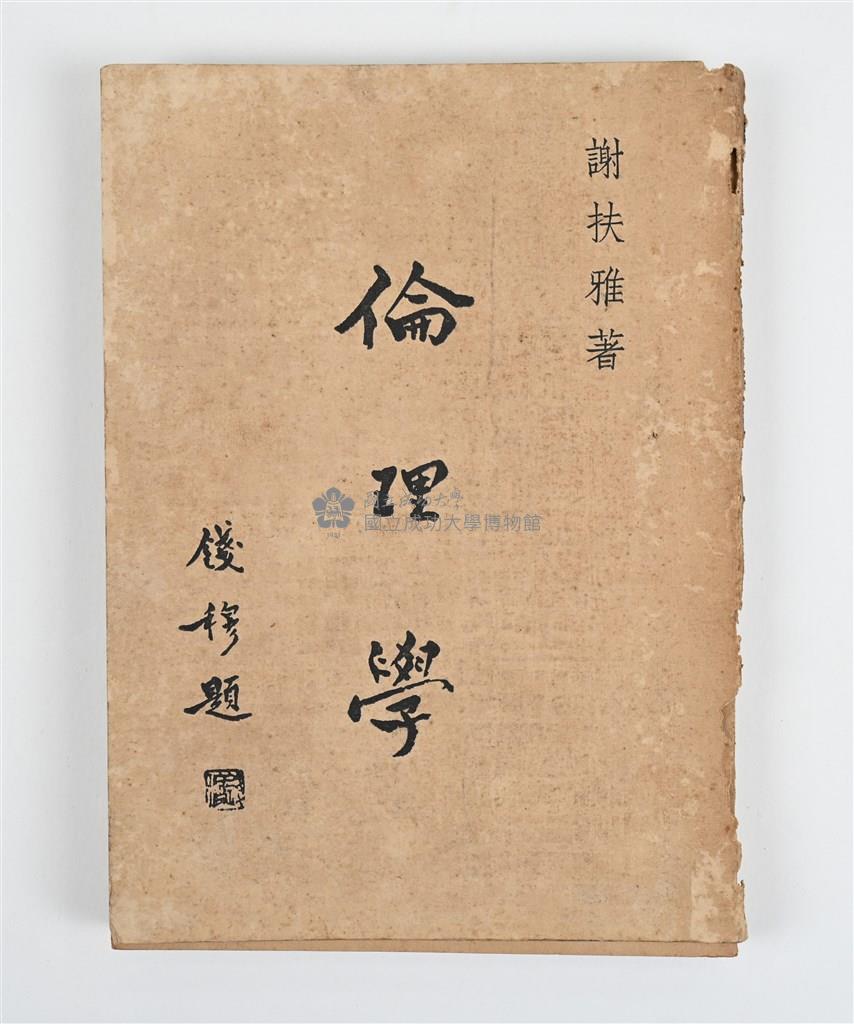 謝扶雅著
倫理學
錢穆題
國立成功大學
國立成功大學博物館
1931